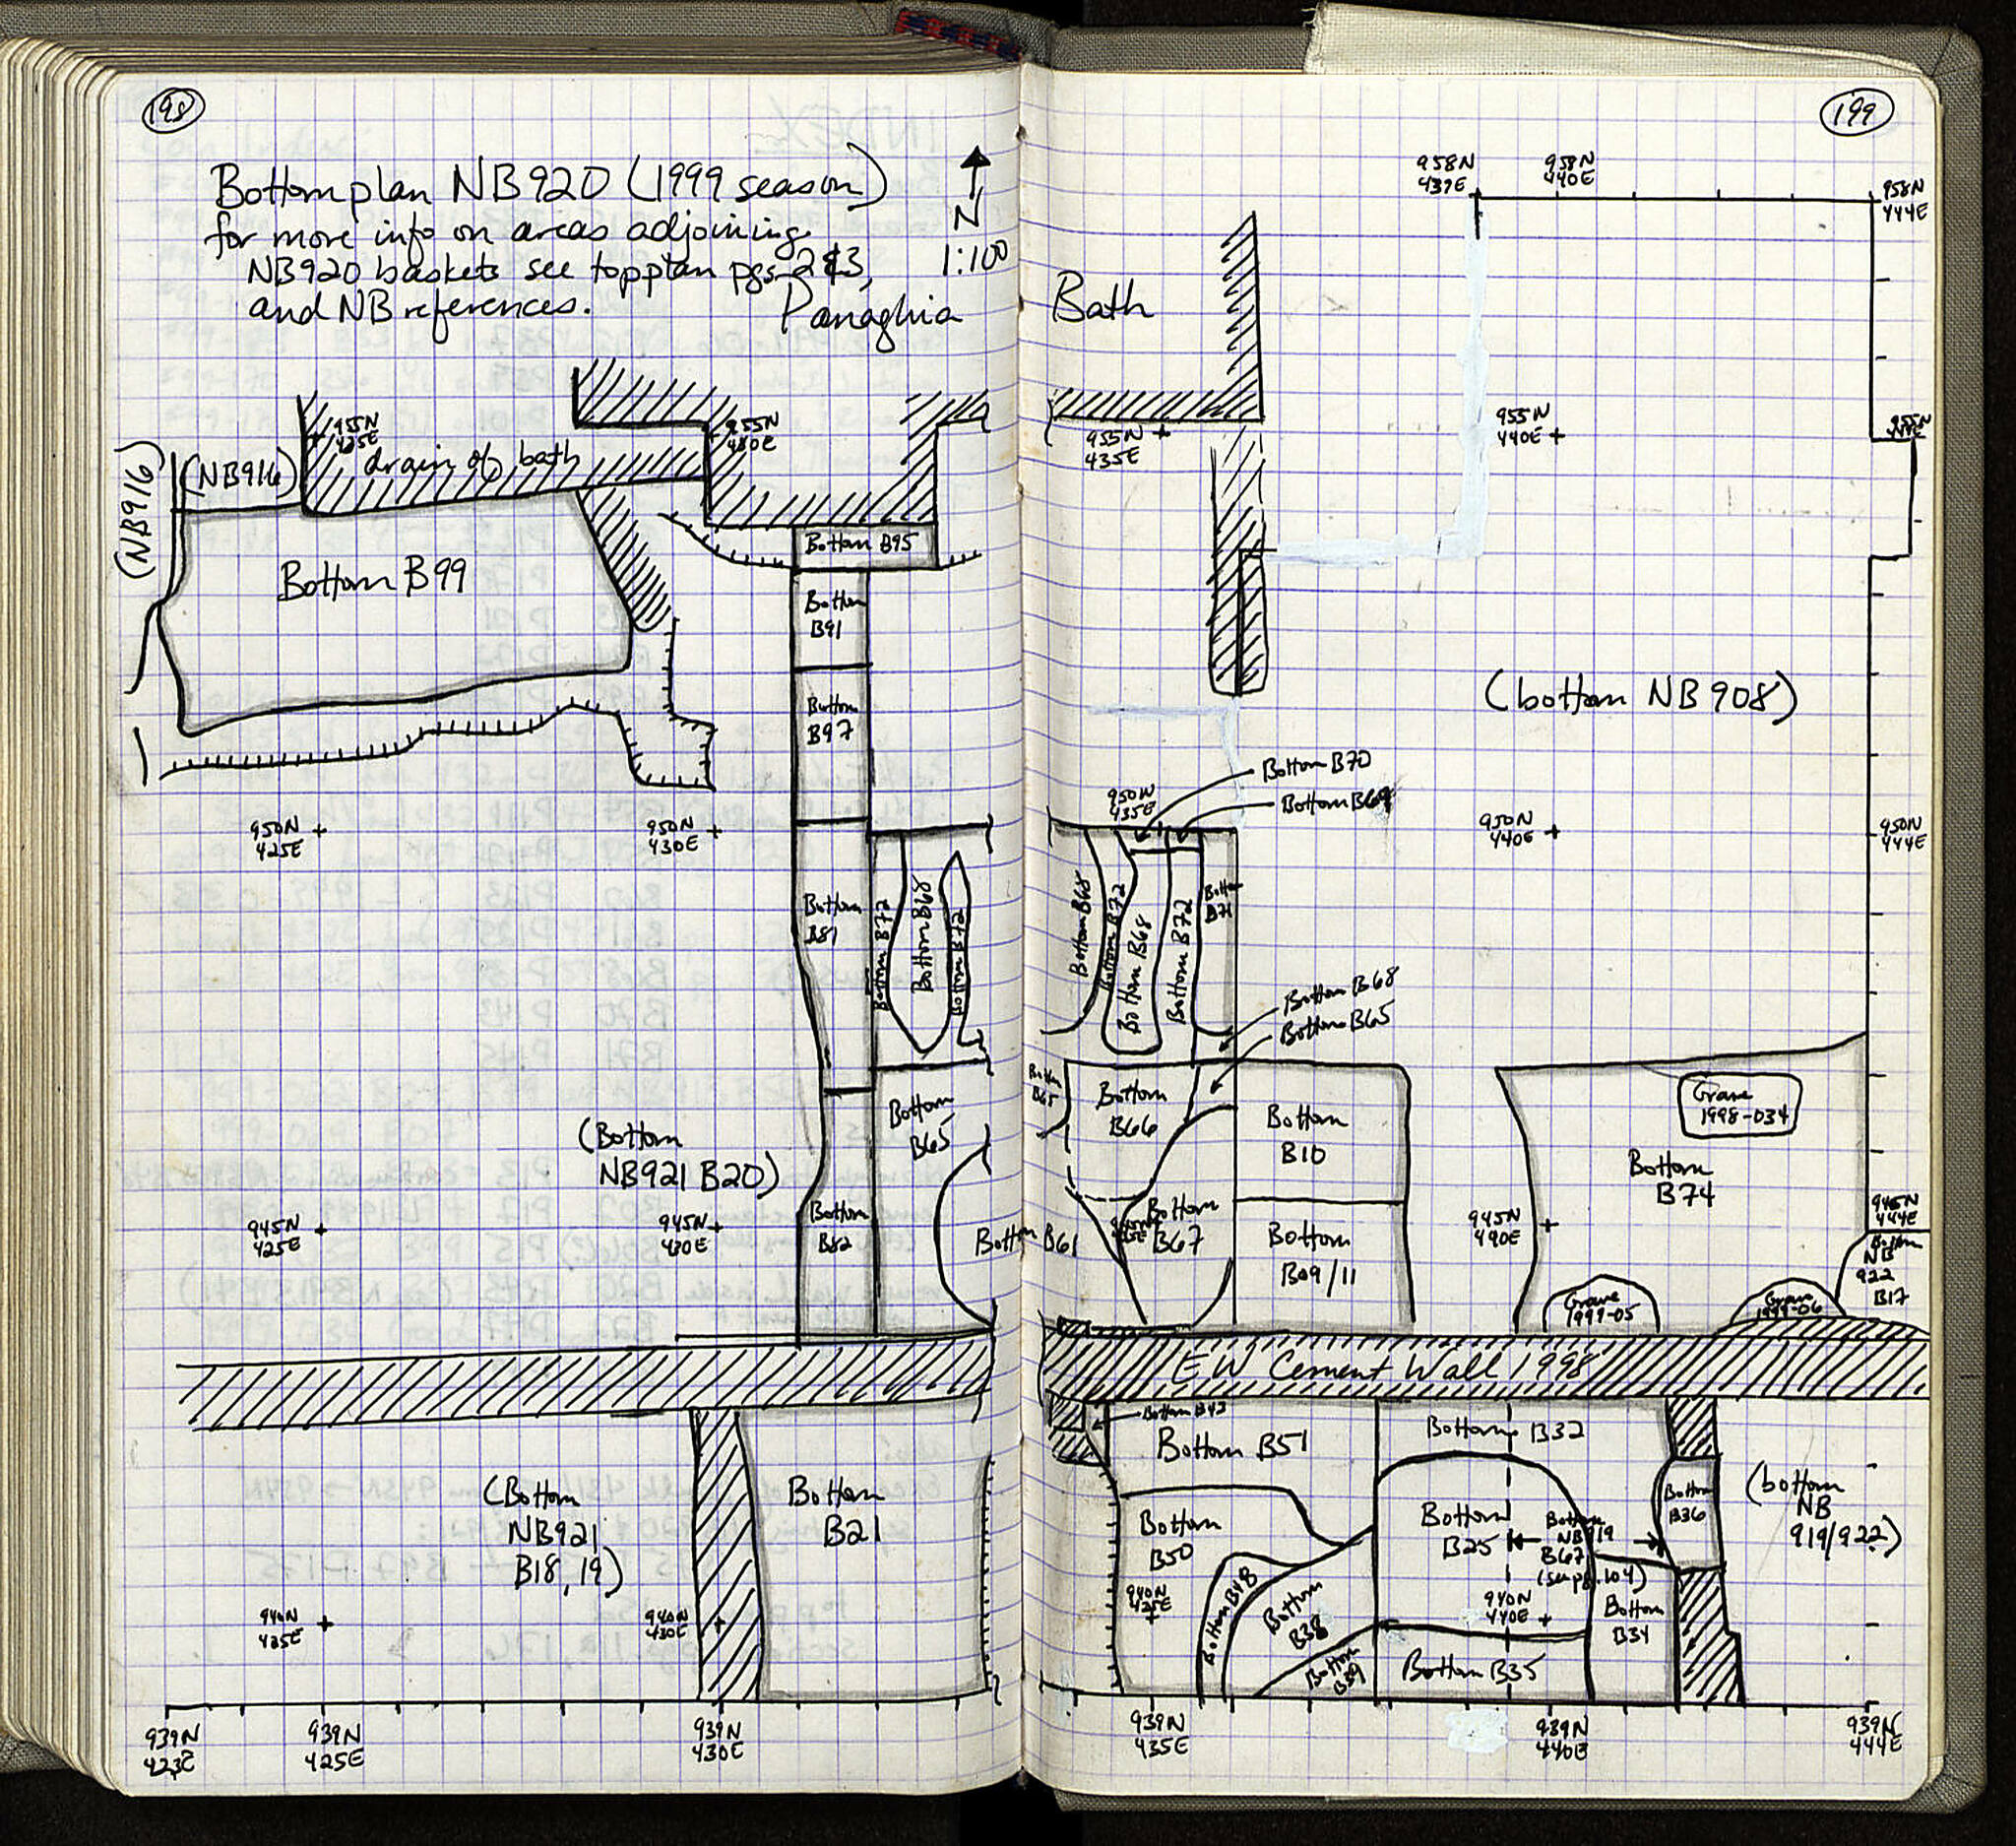 198
Bottom plan NB920 (1999 season)
for more info on areas adjoining
NB920 baskets see topplan pgs 2&3,
and NB references.
N
1:100
Panaghia
(NB916)
(NB916)
955N
425E
drain of bath
955N
430E
Bottom B99
Bottom B95
Bottom
B91
Bottom
B97
950N
425E
950N
430E
Bottom
B81
Bottom B72
Bottom B68
Bottom B72
(Bottom
NB921 B20)
Bottom
B65
945N
425E
945N
430E
Bottom
B82
Bottom B61
(Bottom
NB921
B18,19)
Bottom
B21
940N
425E
940N
430E
939N
423E
939N
425E
939N
430E
199
958N
439E
958N
440E
958N
444E
Bath
955N
435E
955N
440E
955N
(bottom NB908)
Bottom B70
Bottom B69
950N
435E
950N
440E
950N
444E
Bottom B68
Bottom B72
Bottom B68
Bottom B72
Bottom
B71
Bottom B68
Bottom B65
Bottom
B65
Bottom
B66
Bottom
B10
Grave
1998-034
Bottom
B74
Bottom
B67
Bottom
B09/11
945N
490E
945N
444E
Bottom
NB
922
B17
Grave
1999-05
Grave
1999-06
EW Cement Wall 1998
Bottom B43
Bottom B51
Bottom B32
Bottom
B50
Bottom
B25
Bottom
NB919
B67
(see pg. 104)
Bottom
B36
(bottom
NB
919/922)
940N
435E
Bottom B48
Bottom
B38
Bottom
B39
940N
440E
Bottom
B34
Bottom B35
939N
435E
939N
440E
939N
444E